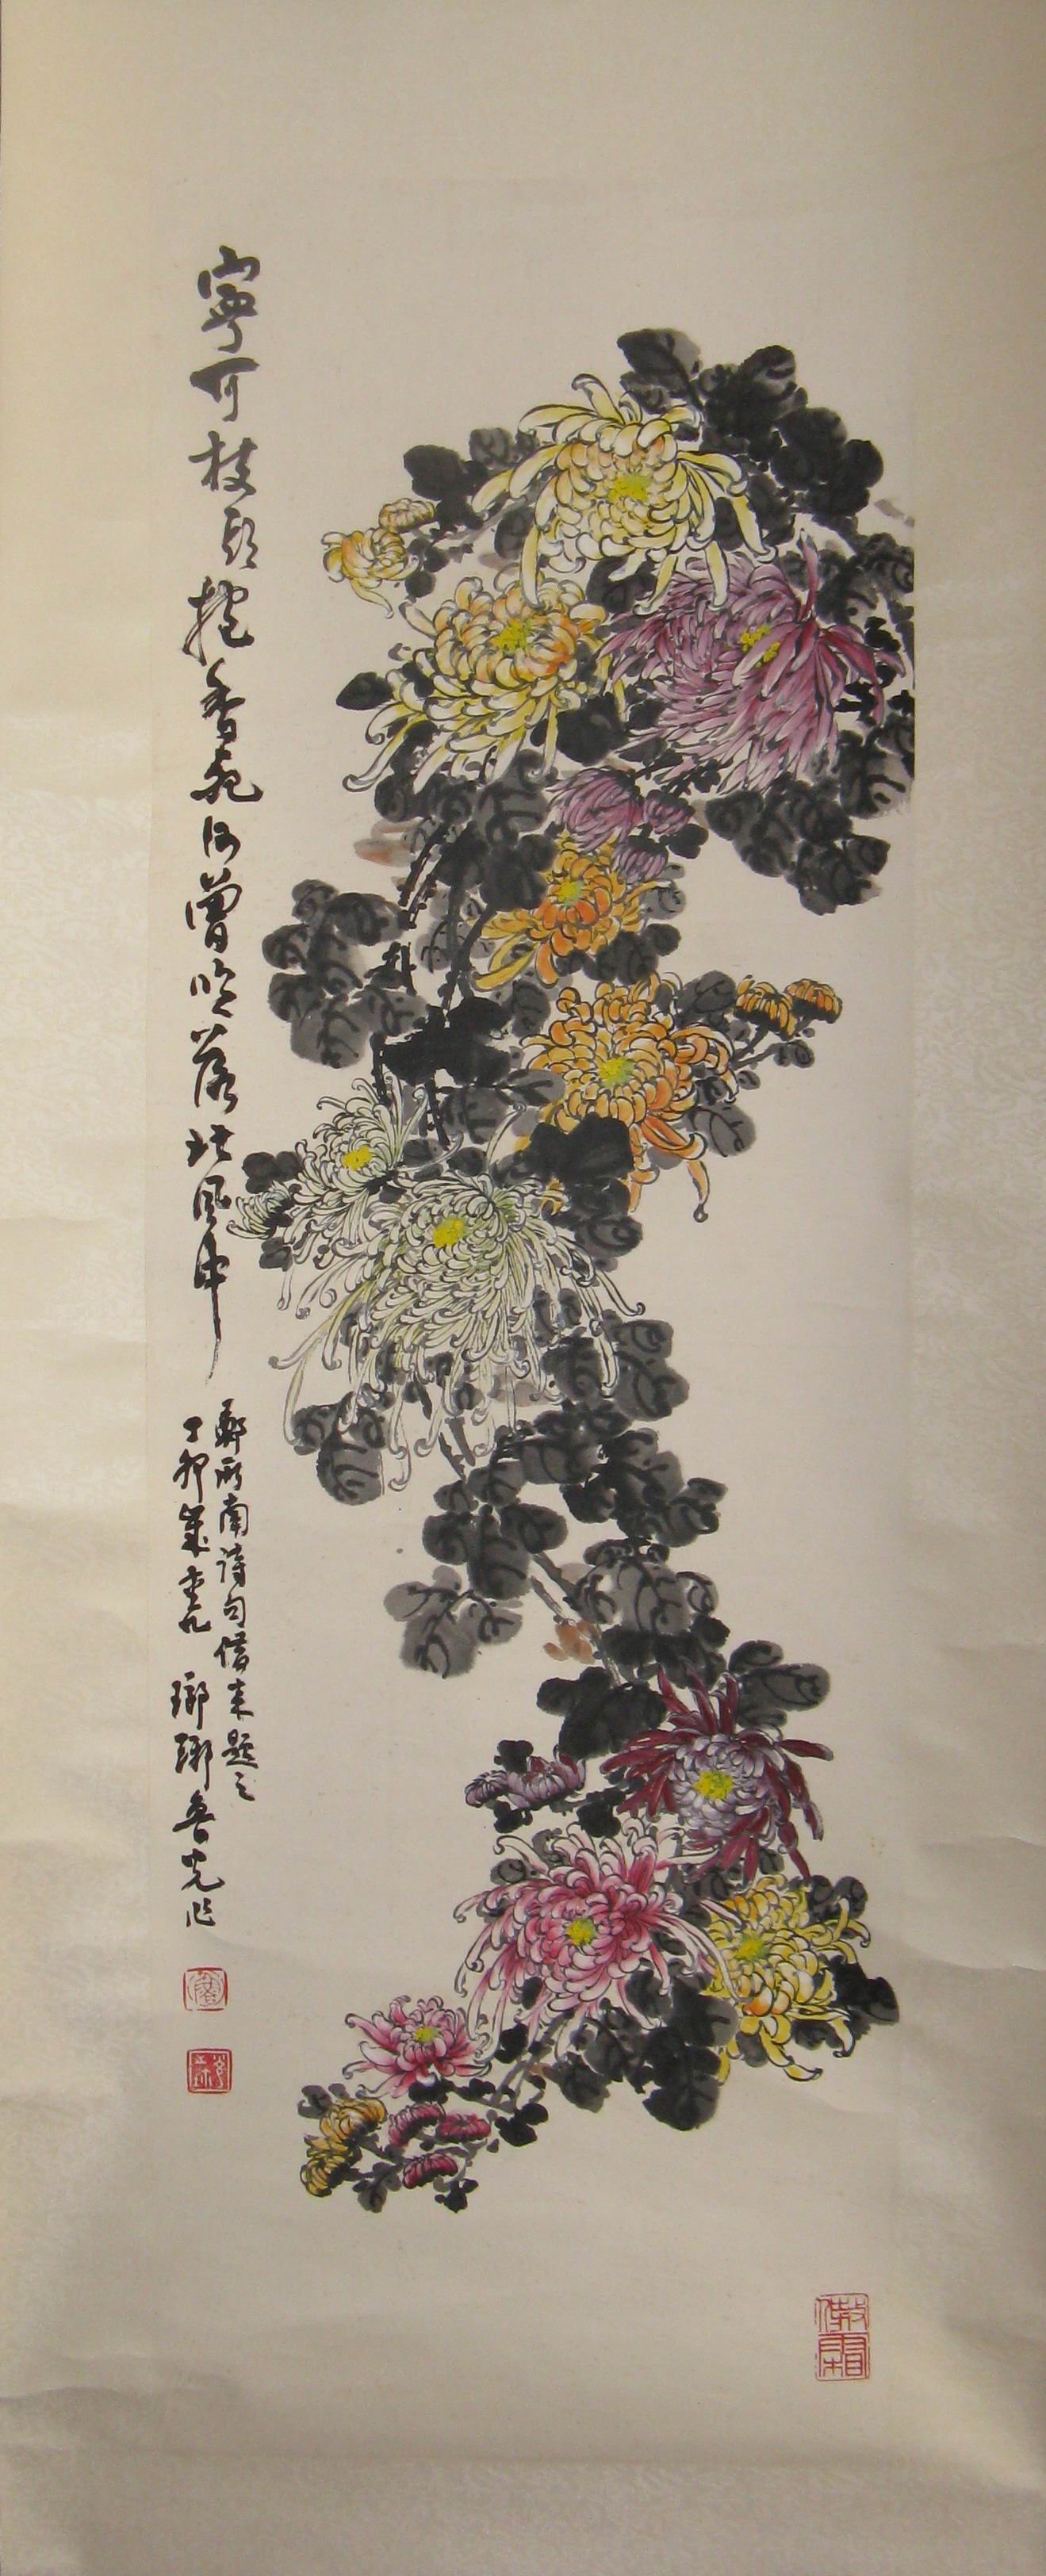 寧可枝頭抱香死何曾吹落北風中
鄭所南詩句借來題之
丁卯歲 瑯琊魯光作
傲霜